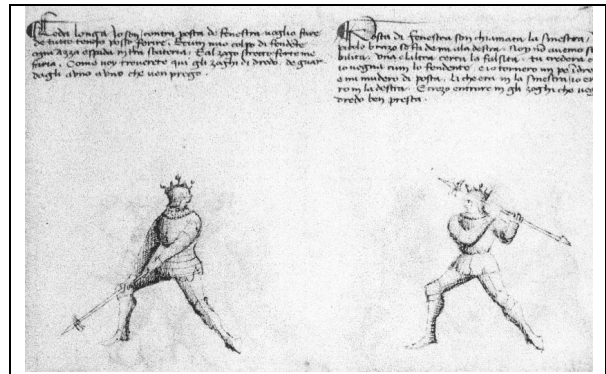 Coda longa Jo son contra posta de fenestra voglio fare
de tutto tempo posso ferire. E cum mio colpo di fendete
ogni azza e spada terra. E al zogo stretto forte me
faria. Como voy trouerete qui gli zoghi di dredo, de guar
dagli a uno a uno che ven prego.
Posta di fenestra son chiamata la sinestra.
picolo brazo de mi ala destra. Noy no auemo sta
bilita. Una e laltra cerca la falsita. tu crederai
io vegna cum lo fendente e io tornero un pe indre
e mi mudero di posta. Li che era in la sinestra io en
ro in la destra. E crezo entrare in gli zoghi che veg
dredo ben presta.